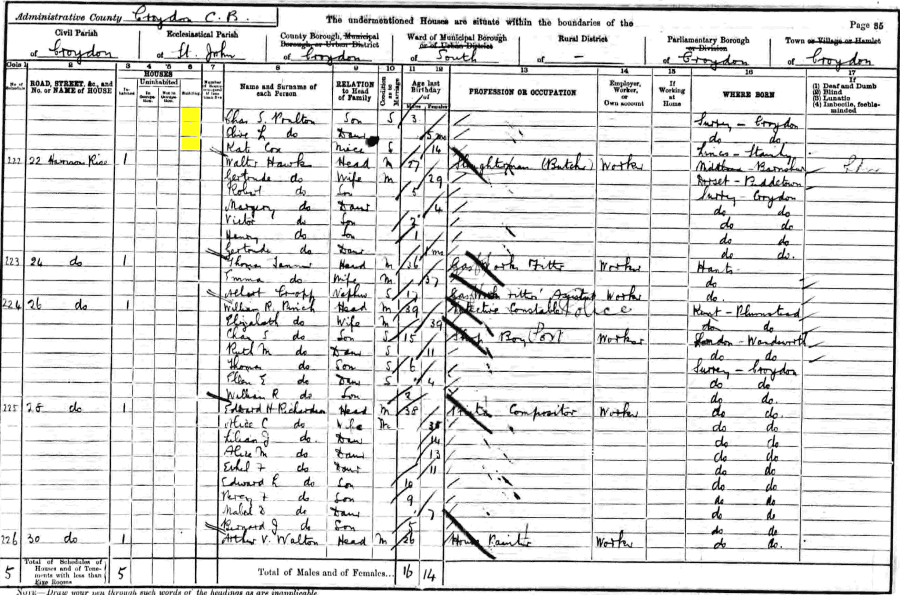 Administrative County Croydon C.B. The undermentioned Houses are situate within the boundaries of the Page 35
Civil Parish Ecclesiastical Parish County Borough, Municipal Borough, or Urban District Ward of Municipal Borough or of Urban District Rural District Parliamentary Borough or Division Town or Village or Hamlet
of Croydon of St. John of Croydon of South of — of Croydon of Croydon
Cols 1 2 3 4 5 6 7 8 9 10 11 12 13 14 15 16 17
No. of Schedule ROAD, STREET, &c., and No. or NAME of HOUSE HOUSES In-habited Uninhabited In Occupation Not in Occupation Building Name and Surname of each Person RELATION to Head of Family Condition as to Marriage Age last Birthday of Males Females PROFESSION OR OCCUPATION Employer, Worker, or Own account If Working at Home WHERE BORN (1) Deaf and Dumb (2) Blind (3) Lunatic (4) Imbecile, feeble-minded
Chas S. Poulton Son S 3 Surrey - Croydon
Olive L do Daur 5 ms do do
Kate Cox Niece S 14 Lincs -
222 22 Rise 1 Walter Hawks Head M 27 Slaughterman (Butcher) Worker
Gertrude do Wife M 29 Dorset -
Robert do Son 5 Surrey - Croydon
Margery do Daur 4 do do
Victor do Son 2 do do
Henry do Son 1 do do
Gertrude do Daur 1 ms do do.
223 24 do 1 Thomas Head M 36 Gas Work Fitter Worker Hants
Emma do Wife M 37 do
Albert Cropp Nephew S 17 Gas Work Fitter's Assistant Worker do
224 26 do 1 William R. Head M 39 Detective Constable Police Kent - Plumstead
Elizabeth do Wife M 39 do do
Chas S do Son S 15 Shop Boy Port Worker London - Wandsworth
Ruth M do Daur S 11 do do
Thomas do Son S 6 Surrey - Croydon
Ellen E do Daur S 4 do do
William R do Son 2 do do.
225 28 do 1 Edward H Richardson Head M 38 Printer Compositor Worker do do
Alice C do Wife M 38 do do
Lilian J do Daur 14 do do
Alice M do Daur 13 do do
Ethel F do Daur 11 do do
Edward L do Son 10 do do
Percy F do Son 9 do do
Mabel D do Daur 7 do do
Bernard J do Son 5 do do
226 30 do 1 Arthur V. Walton Head M 26 House Painter Worker do do.
5 Total of Schedules of Houses and of Tenements with less than Five Rooms 5 Total of Males and of Females... 16 14
NOTE—Draw your pen through such words of the headings as are inapplicable.